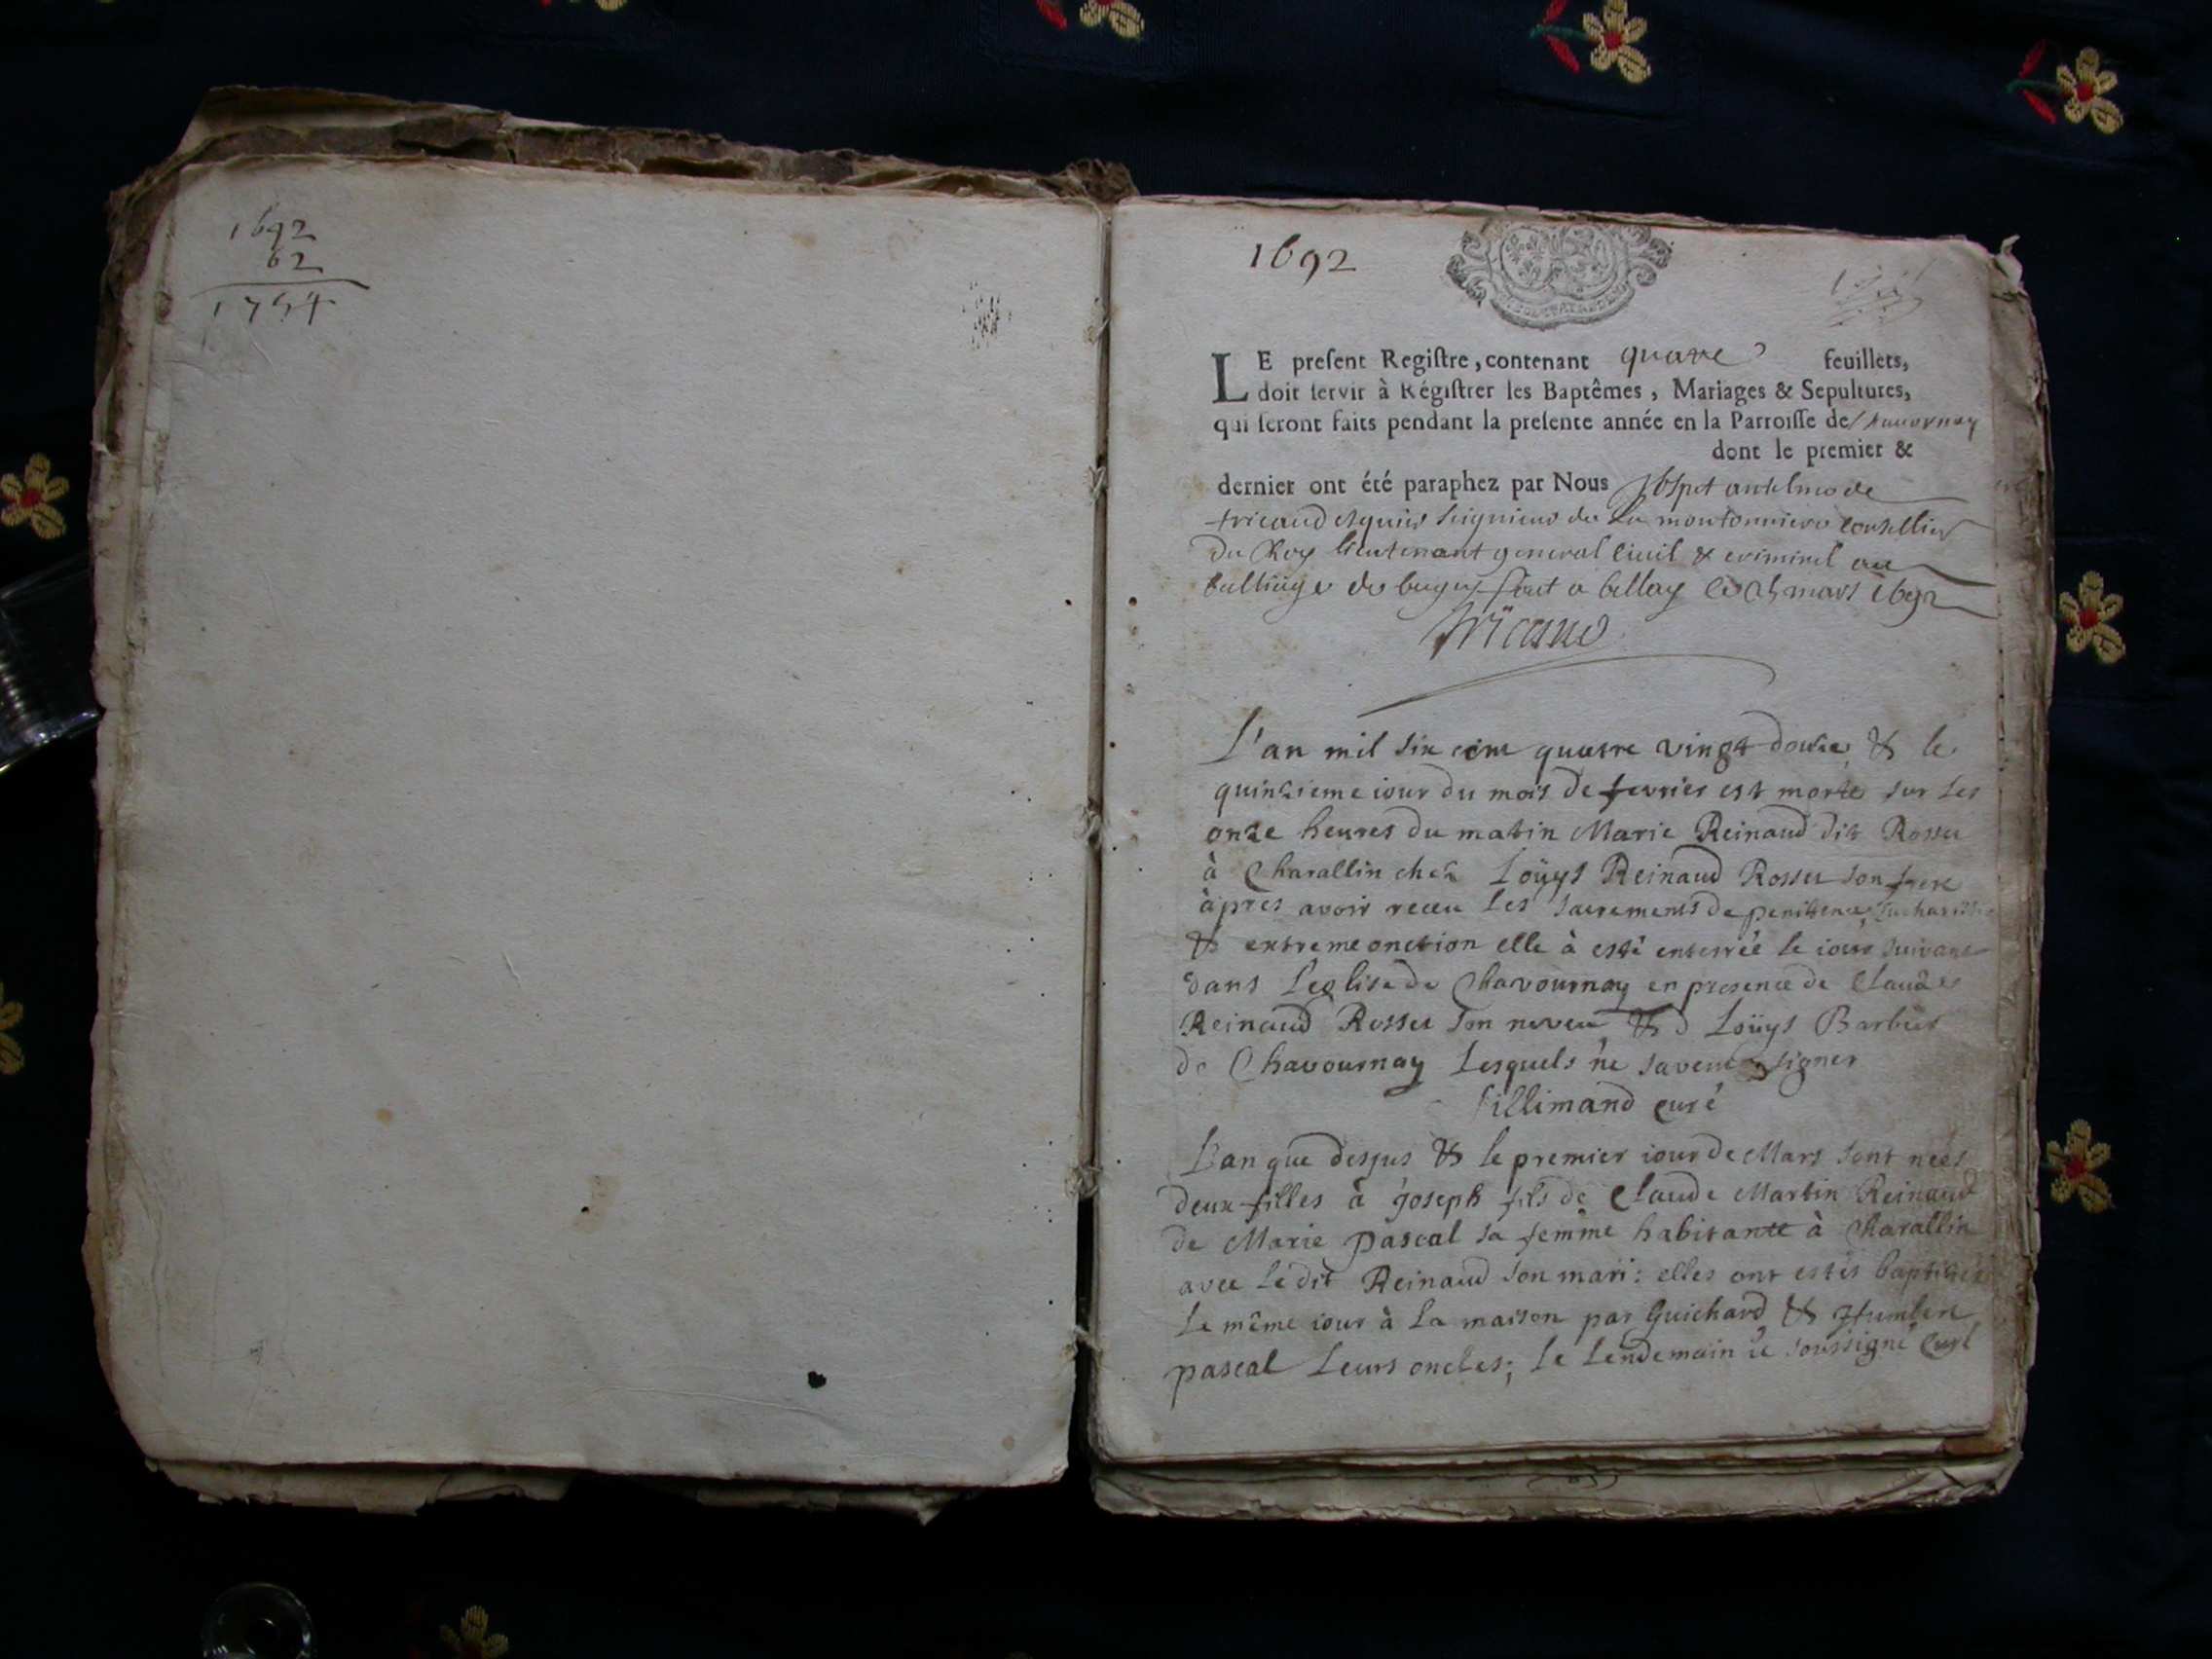 1692
62
1754
1692
LE preſent Regiſtre, contenant quatre feuillets,
doit ſervir à Régiſtrer les Baptêmes, Mariages & Sepultures,
qui ſeront faits pendant la preſente année en la Parroiſſe de Chavornay
dont le premier &
dernier ont été paraphez par Nous antelme de
tricaud esquier seigneur de la montonniere consellier
du Roy lieutenant general civil & criminel au
balliage de bugey fait a bellay le mars 1692
Tricaud
L'an mil six cent quatre vingt douze & le
quinzieme iour du mois de fevrier est morte sur les
onze heures du matin Marie Reinaud dit Rosset
à Charallin chez Loüys Reinaud Rosset son frere
àpres avoir receu les sacrements de penitence, Eucharistie
& extreme onction elle à esté enterréé le iour suivant
dans L'eglise de Chavournay en presence de Claude
Reinaud Rosset son neveu & d Loüys Barbier
de Chavournay Lesquels ne savent signer
Fillimand curé
L'an que dessus & le premier iour de Mars sont néés
deux filles à joseph fils de Claude Martin Reinaud
de Marie pascal sa femme habitante à Charallin
avec le dit Reinaud son mari: elles ont estés baptisées
Le même iour à La maison par Guichard & Humbert
pascal Leurs oncles; Le Lendemain ie soussigné Curé